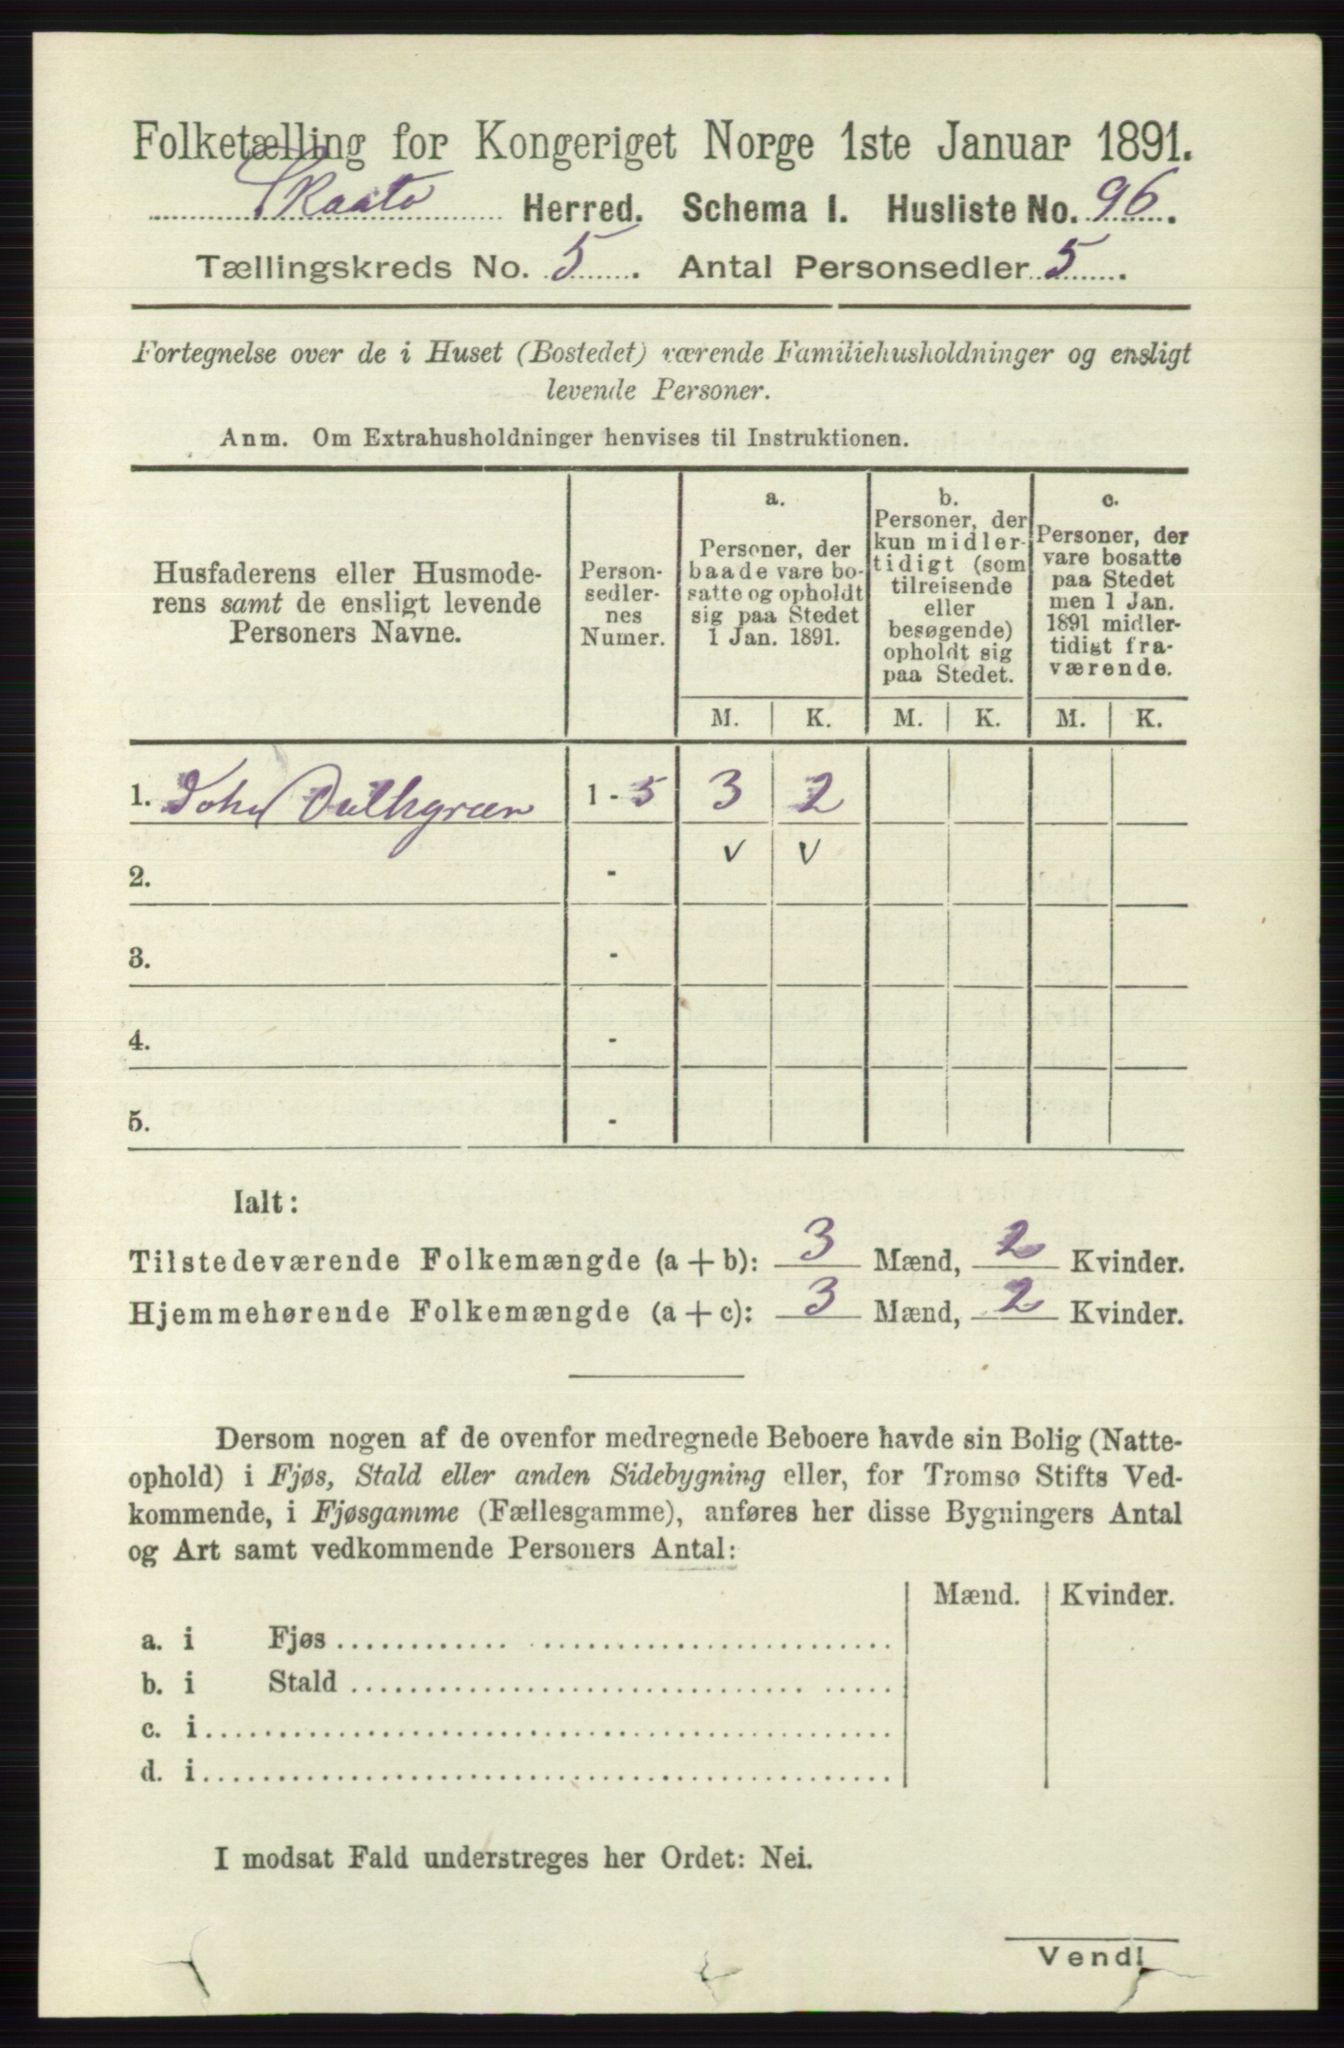 Folketælling for Kongeriget Norge 1ste Januar 1891.
Skaatø Herred. Schema I. Husliste No. 96.
Tællingskreds No. 5. Antal Personsedler 5.
Fortegnelse over de i Huset (Bostedet) værende Familiehusholdninger og ensligt
levende Personer.
Anm. Om Extrahusholdninger henvises til Instruktionen.
Husfaderens eller Husmode-
rens samt de ensligt levende
Personers Navne.
Person-
sedler-
nes
Numer.
a.
Personer, der
baade vare bo-
satte og opholdt
sig paa Stedet
1 Jan. 1891.
b.
Personer, der
kun midler-
tidigt (som
tilreisende
eller
besøgende)
opholdt sig
paa Stedet.
c.
Personer, der
vare bosatte
paa Stedet
men 1 Jan.
1891 midler-
tidigt fra-
værende.
M. K. M. K. M. K.
1. John 1-5 3 2
v v
2. -
3. -
4. -
5. -
Ialt:
Tilstedeværende Folkemængde (a+b): 3 Mænd, 2 Kvinder.
Hjemmehørende Folkemængde (a+c): 3 Mænd, 2 Kvinder.
Dersom nogen af de ovenfor medregnede Beboere havde sin Bolig (Natte-
ophold) i Fjøs, Stald eller anden Sidebygning eller, for Tromsø Stifts Ved-
kommende, i Fjøsgamme (Fællesgamme), anføres her disse Bygningers Antal
og Art samt vedkommende Personers Antal:
Mænd. Kvinder.
a. i Fjøs
b. i Stald
c. i
d. i
I modsat Fald understreges her Ordet: Nei.
Vend!